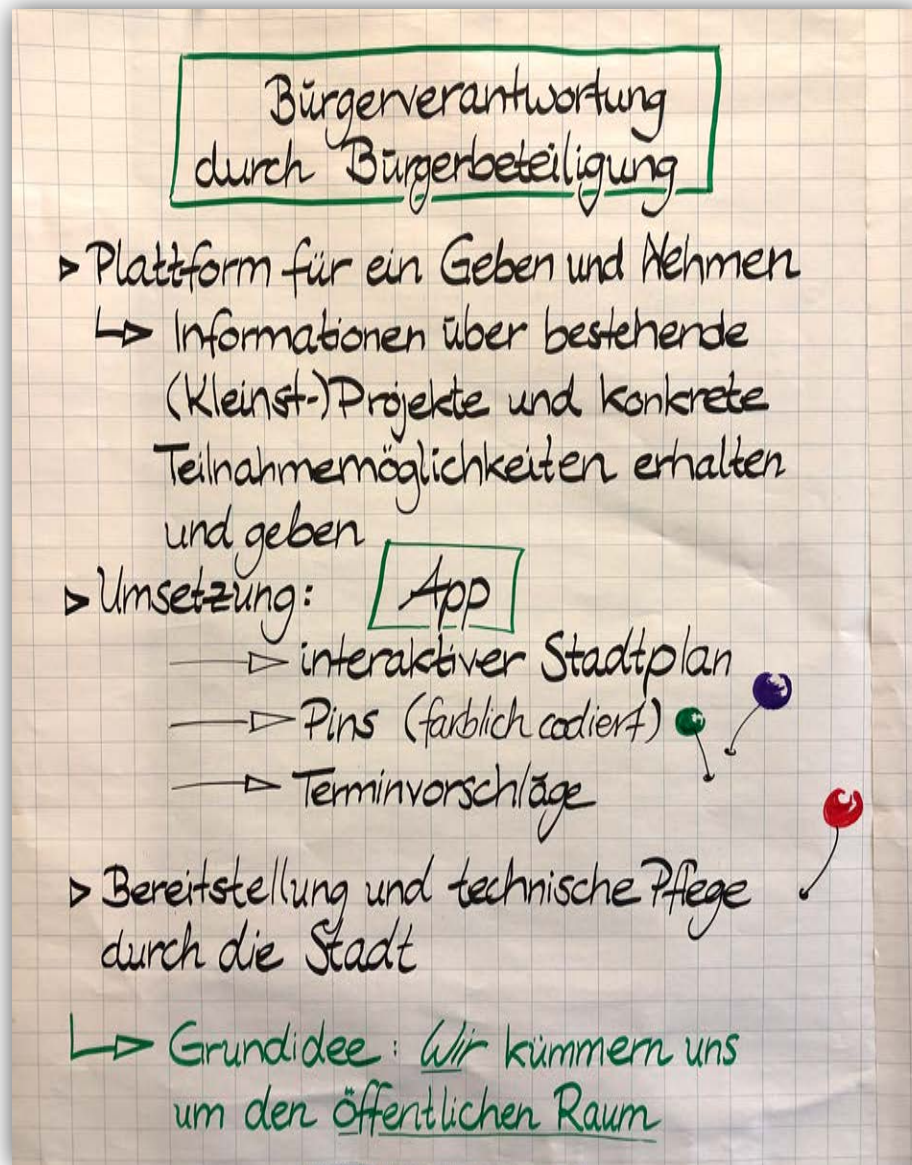 Bürgerverantwortung
durch Bürgerbeteiligung
▹ Plattform für ein Geben und Nehmen
↳ Informationen über bestehende
(Kleinst-)Projekte und konkrete
Teilnahmemöglichkeiten erhalten
und geben
▹ Umsetzung: App
→ interaktiver Stadtplan
→ Pins (farblich codiert)
→ Terminvorschläge
▹ Bereitstellung und technische Pflege
durch die Stadt
↳ Grundidee: Wir kümmern uns
um den öffentlichen Raum